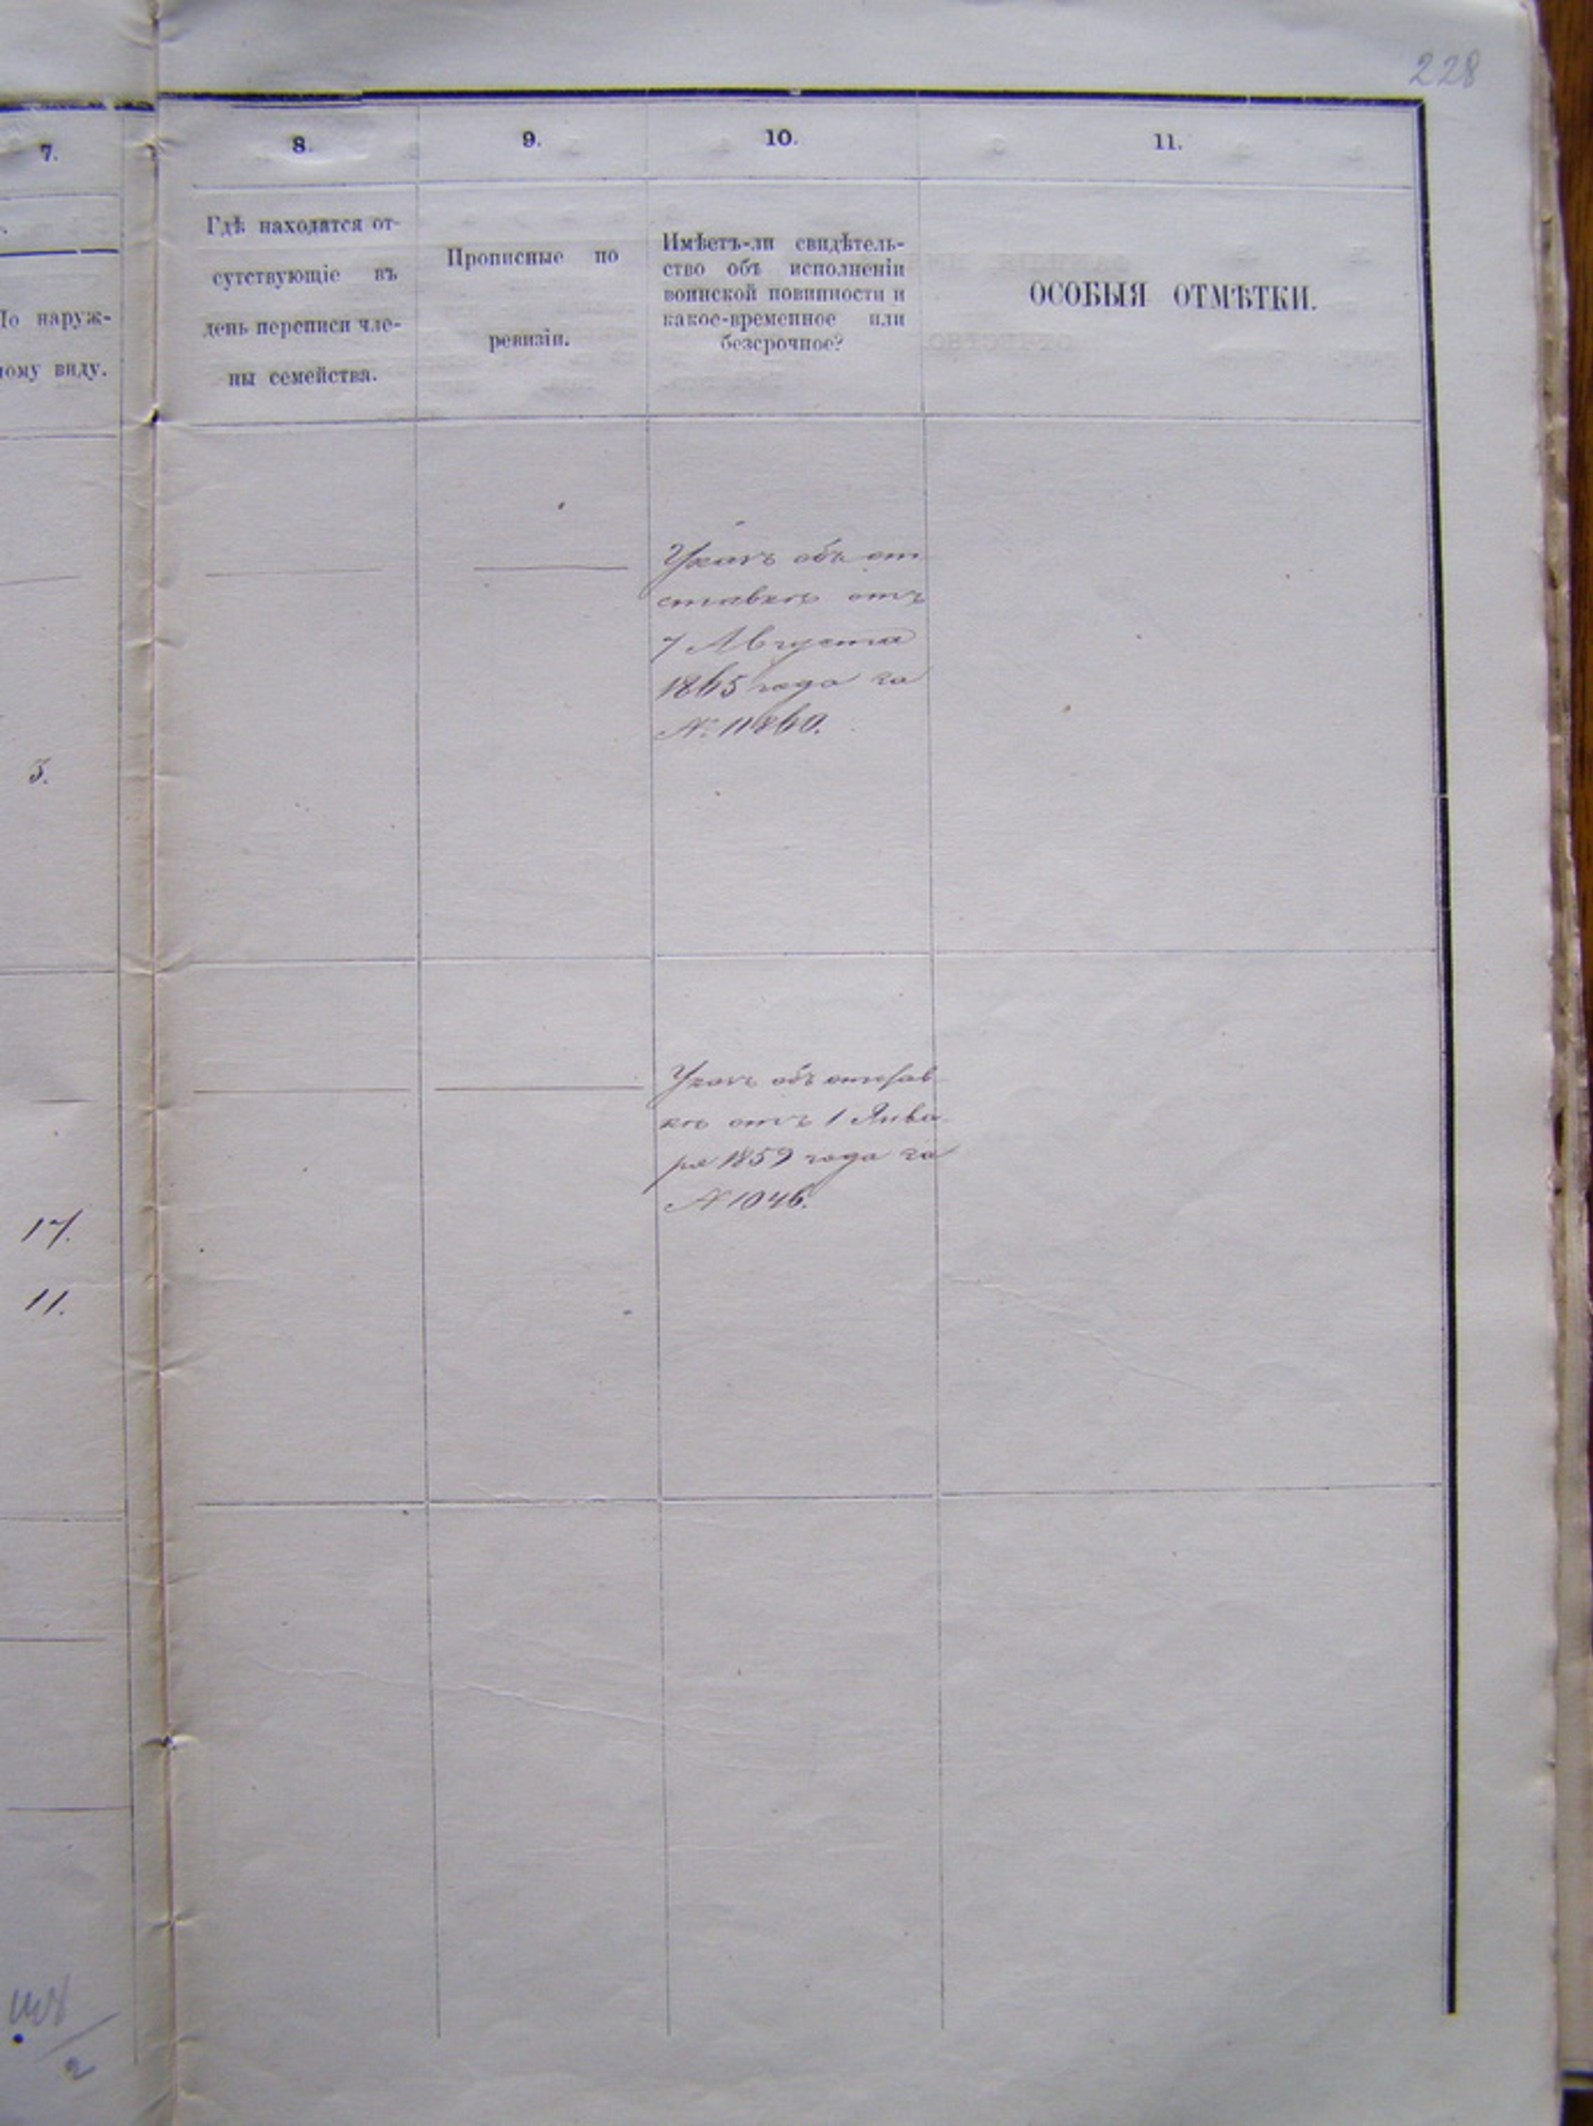 228
7.
8.
9.
10.
11.
По наруж-
ному виду.
Гдѣ находятся от-
сутствующіе въ
день переписи чле-
ны семейства.
Прописные по
ревизіи.
Имѣетъ-ли свидѣтель-
ство объ исполненіи
воинской повинности и
какое-временное или
безсрочное?
ОСОБЫЯ ОТМѢТКИ.
Указъ объ от
ставкѣ отъ
7 Августа
1865 года за
№ 11860.
3.
Указъ объ отстав
кѣ отъ 1 Янва-
ря 1859 года за
№ 1046.
17.
11.
2